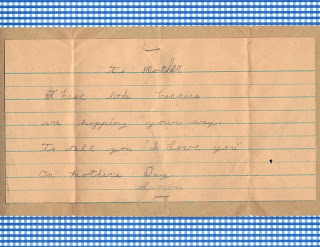 To Mother
These little bunnies
are hopping your way.
To tell you "I Love you"
On Mother's Day.